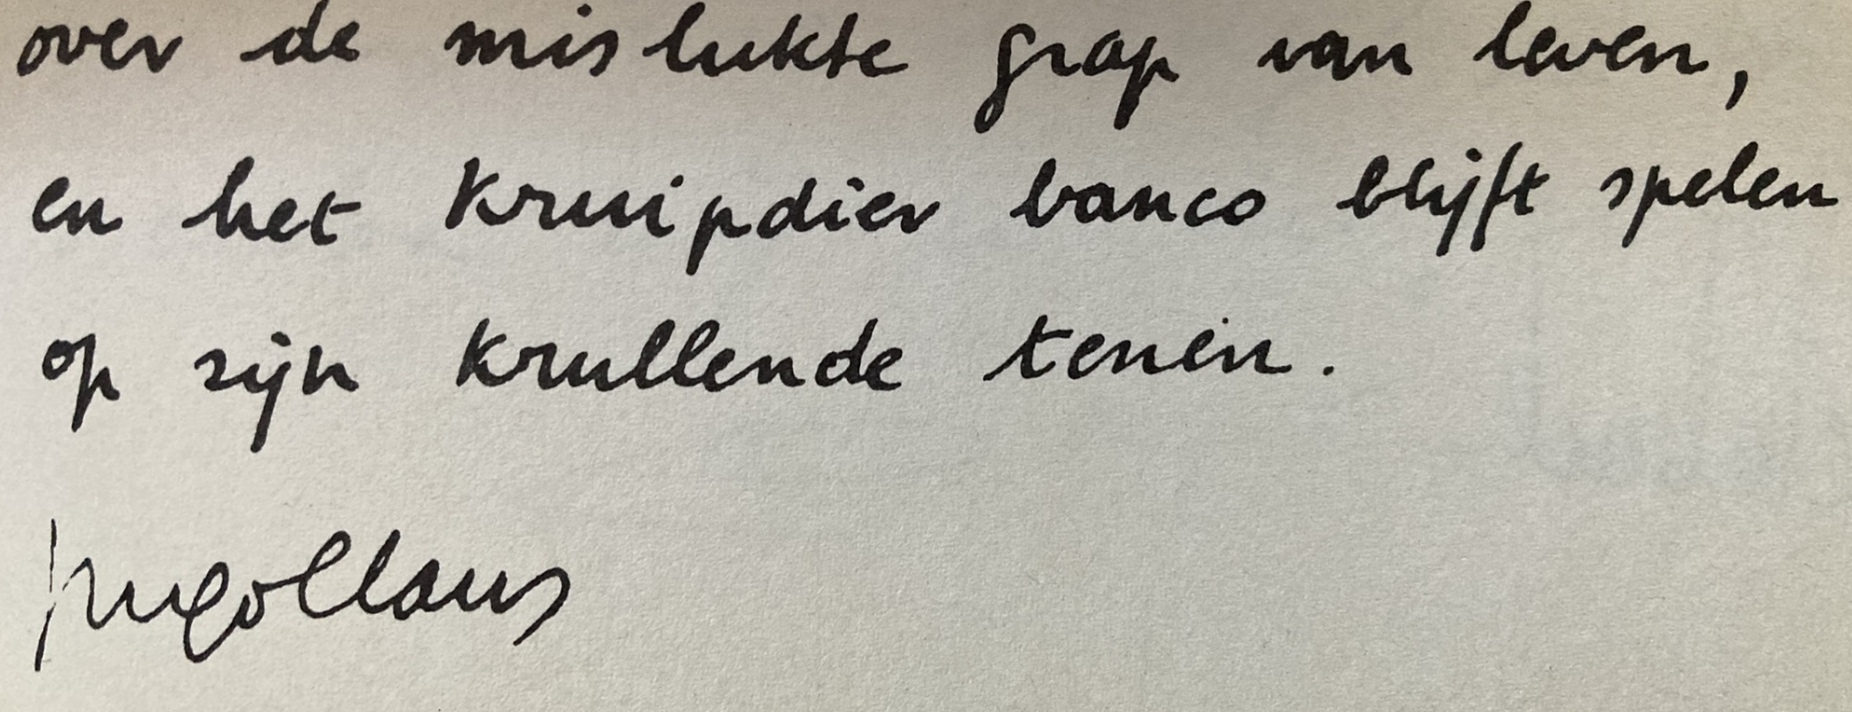 over de mislukte grap van leven,
en het kruipdier banco blijft spelen
op zijn krullende tenen.
Hugo Claus